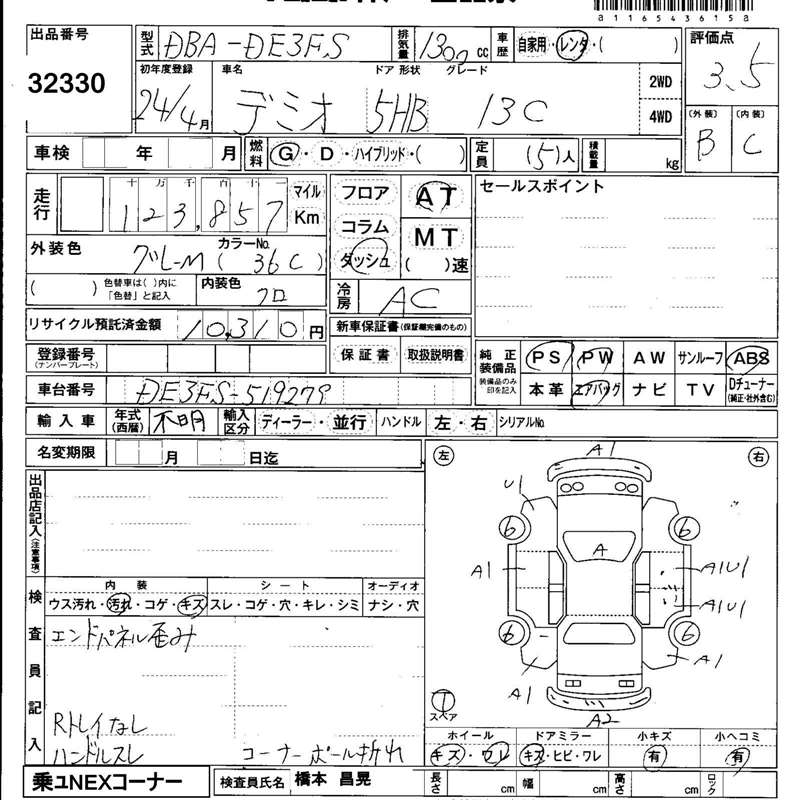 a11654361５a
出品番号
32330
型式 DBA-DE3FS
排気量 1300 cc
車歴 自家用・レンタ・( )
評価点
3.5
初年度登録
24/4月
車名
デミオ
ドア 形状
5HB
グレード
13C
2WD
4WD
(外装) B
(内装) C
車検 年 月
燃料 G・D・ハイブリッド・( )
定員 (5)人
積載量 kg
走行 十万千百十一
123,857
マイル
Km
フロア
コラム
ダッシュ
AT
MT
( )速
セールスポイント
外装色 グレーM
カラーNo.
(36C)
( )
色替車は( )内に
「色替」と記入
内装色
クロ
冷房 AC
リサイクル預託済金額 10,310円
新車保証書(保証欄完備のもの)
保証書 取扱説明書
登録番号
(ナンバープレート)
純正装備品
装備品のみ印を記入
PS PW AW サンルーフ ABS
本革 エアバッグ ナビ TV Dチューナー
(純正・社外含む)
車台番号 DE3FS-519279
輸入車 年式(西暦) 不明
輸入区分 ディーラー・並行
ハンドル 左・右 シリアルNo.
名変期限 月 日迄
左
右
出品店記入(注意事項)
A1
U1
6
6
A
A1
A1U1
A1U1
6
6
A1
A1
A2
スペア
検査員記入
内装
ウス汚れ・汚れ・コゲ・キズ
シート
スレ・コゲ・穴・キレ・シミ
オーディオ
ナシ・穴
エンドパネル歪み
Rトレイなし
ハンドルスレ
コーナーポール折れ
ホイール
キズ・ワレ
ドアミラー
キズ・ヒビ・ワレ
小キズ
有
小ヘコミ
有
乗ユNEXコーナー
検査員氏名 橋本 昌晃
長さ cm 幅 cm 高さ cm ロック